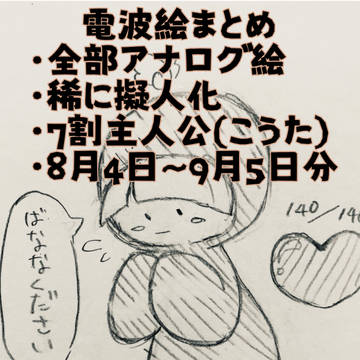 電波絵まとめ
・全部アナログ絵
・稀に擬人化
・7割主人公(こうた)
・8月4日~9月5日分
ばななください
140/140